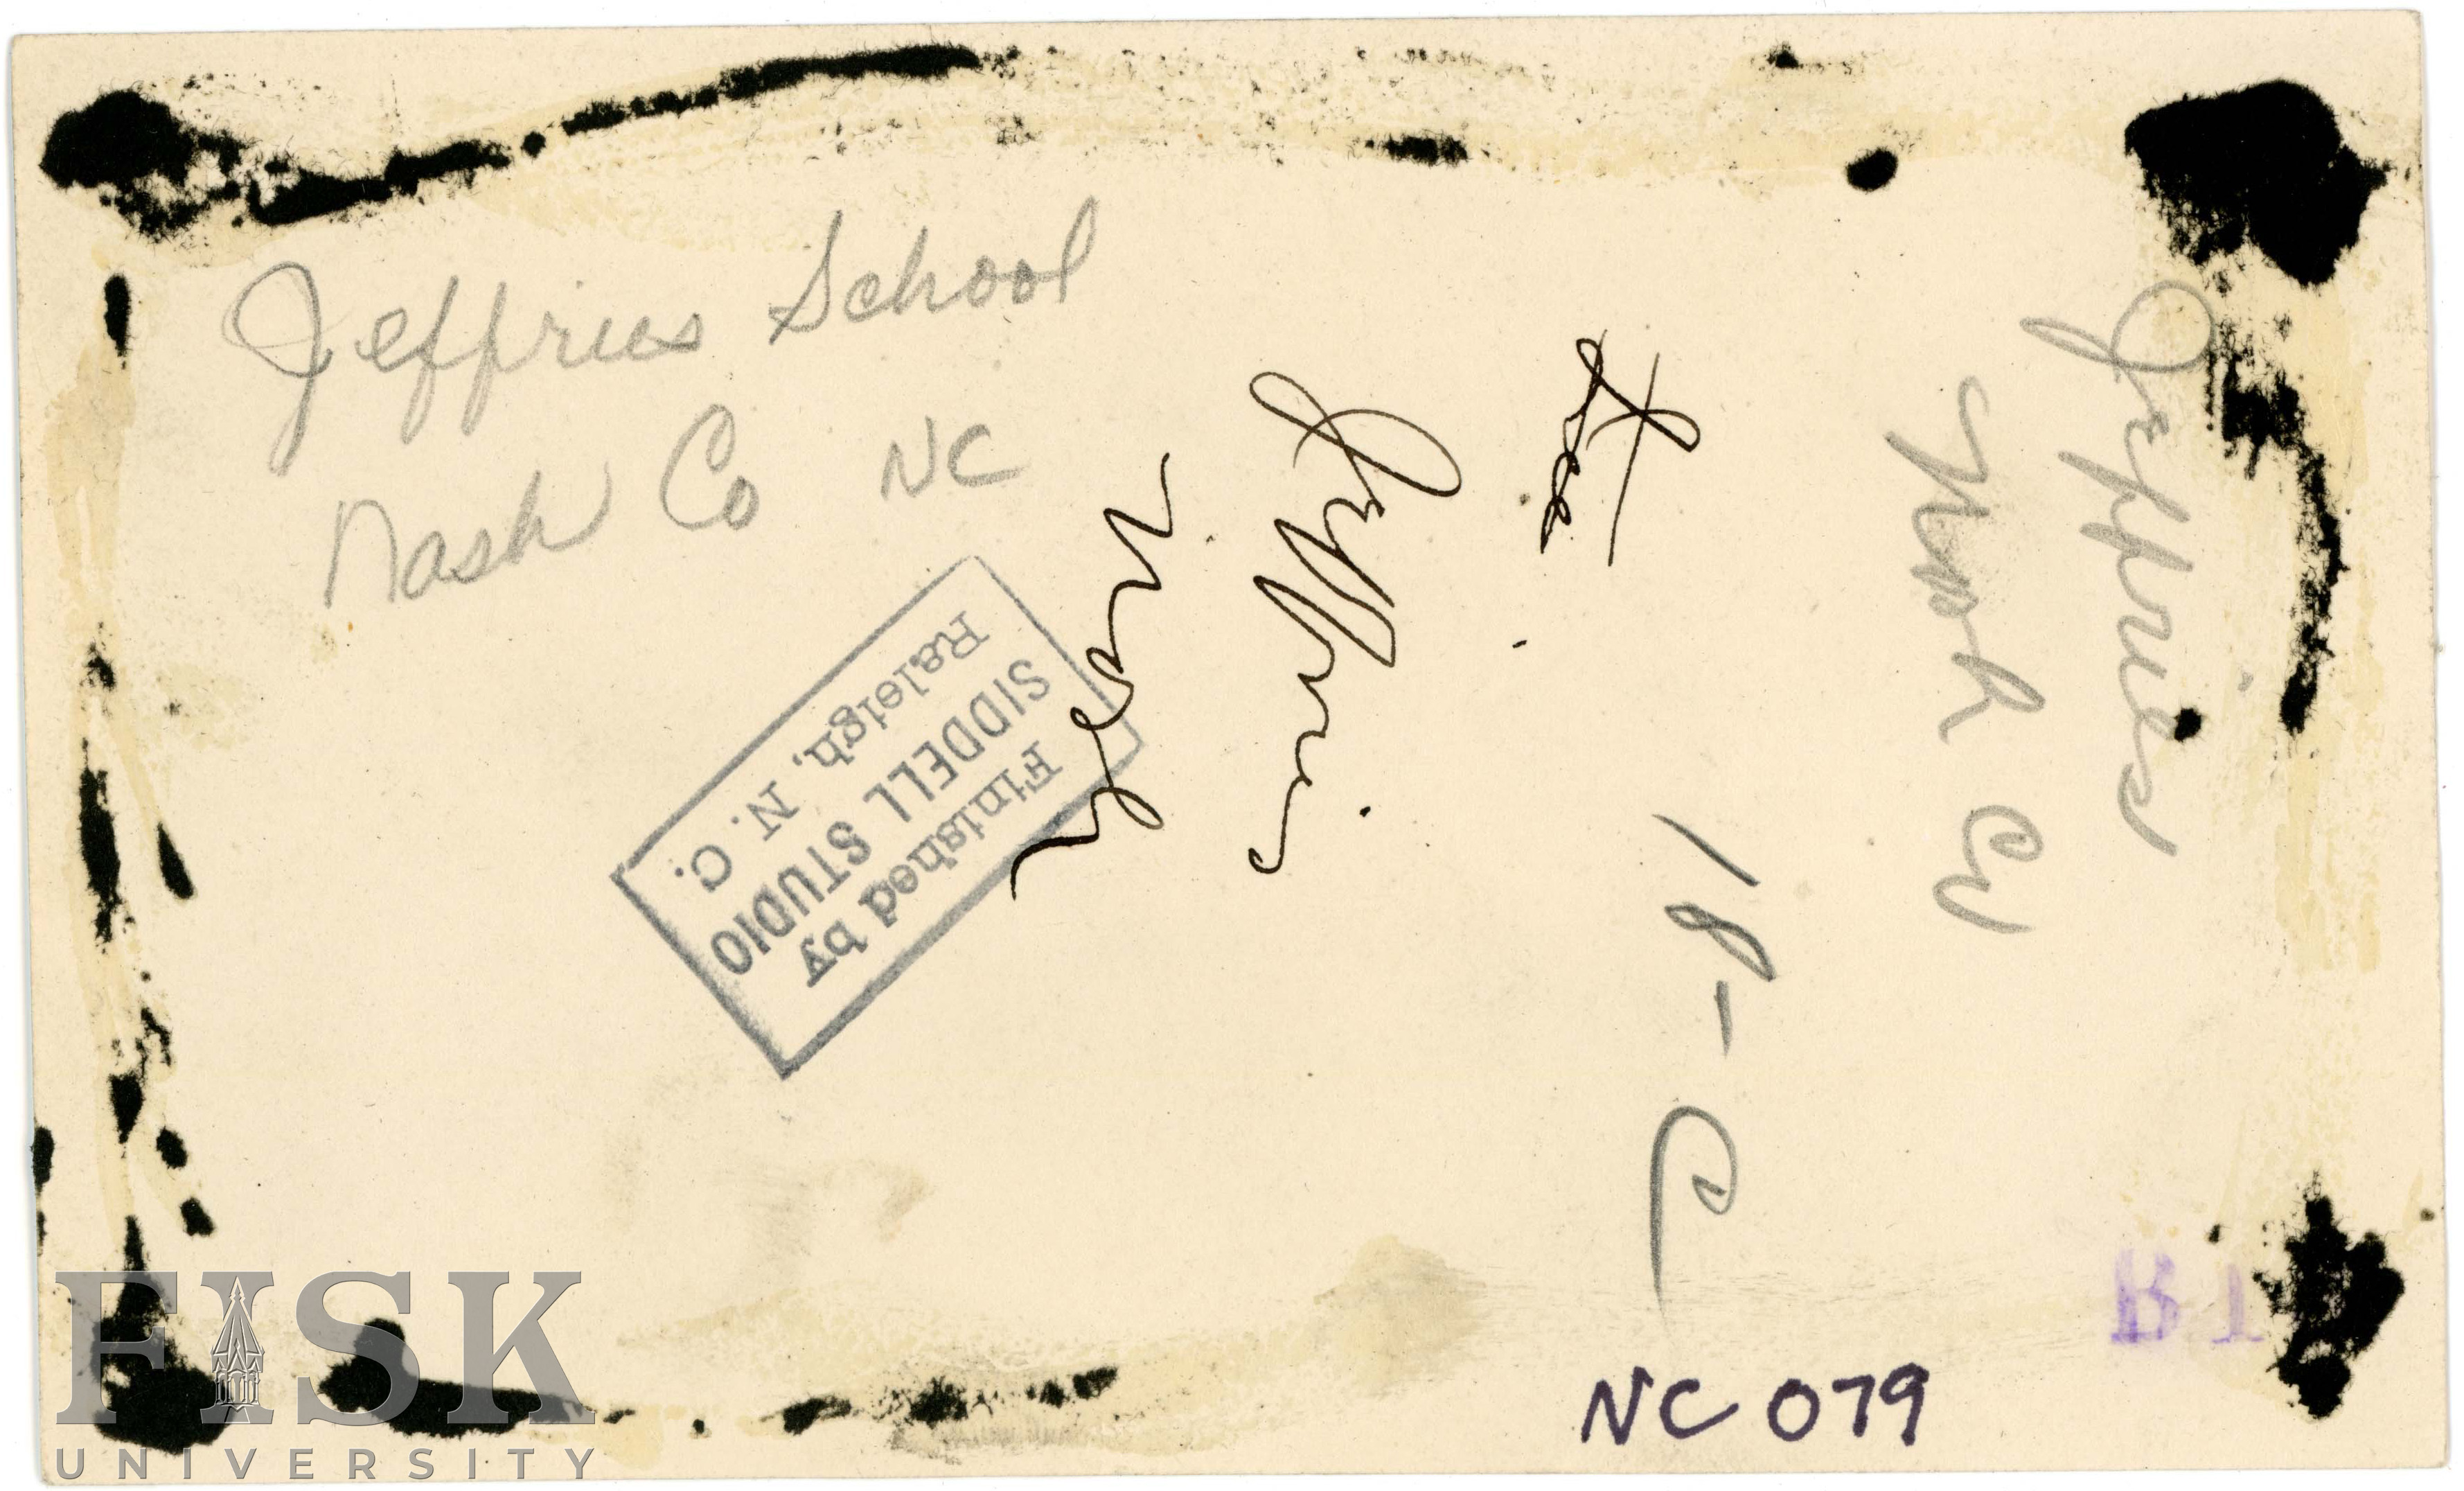 Jeffries School
Nash Co NC
Jeffries
Nash Co
Lee
Jeffries
Nash
18-C
Finished by
SIDDELL STUDIO
Raleigh, N. C.
B 1
NC 079
FISK
UNIVERSITY